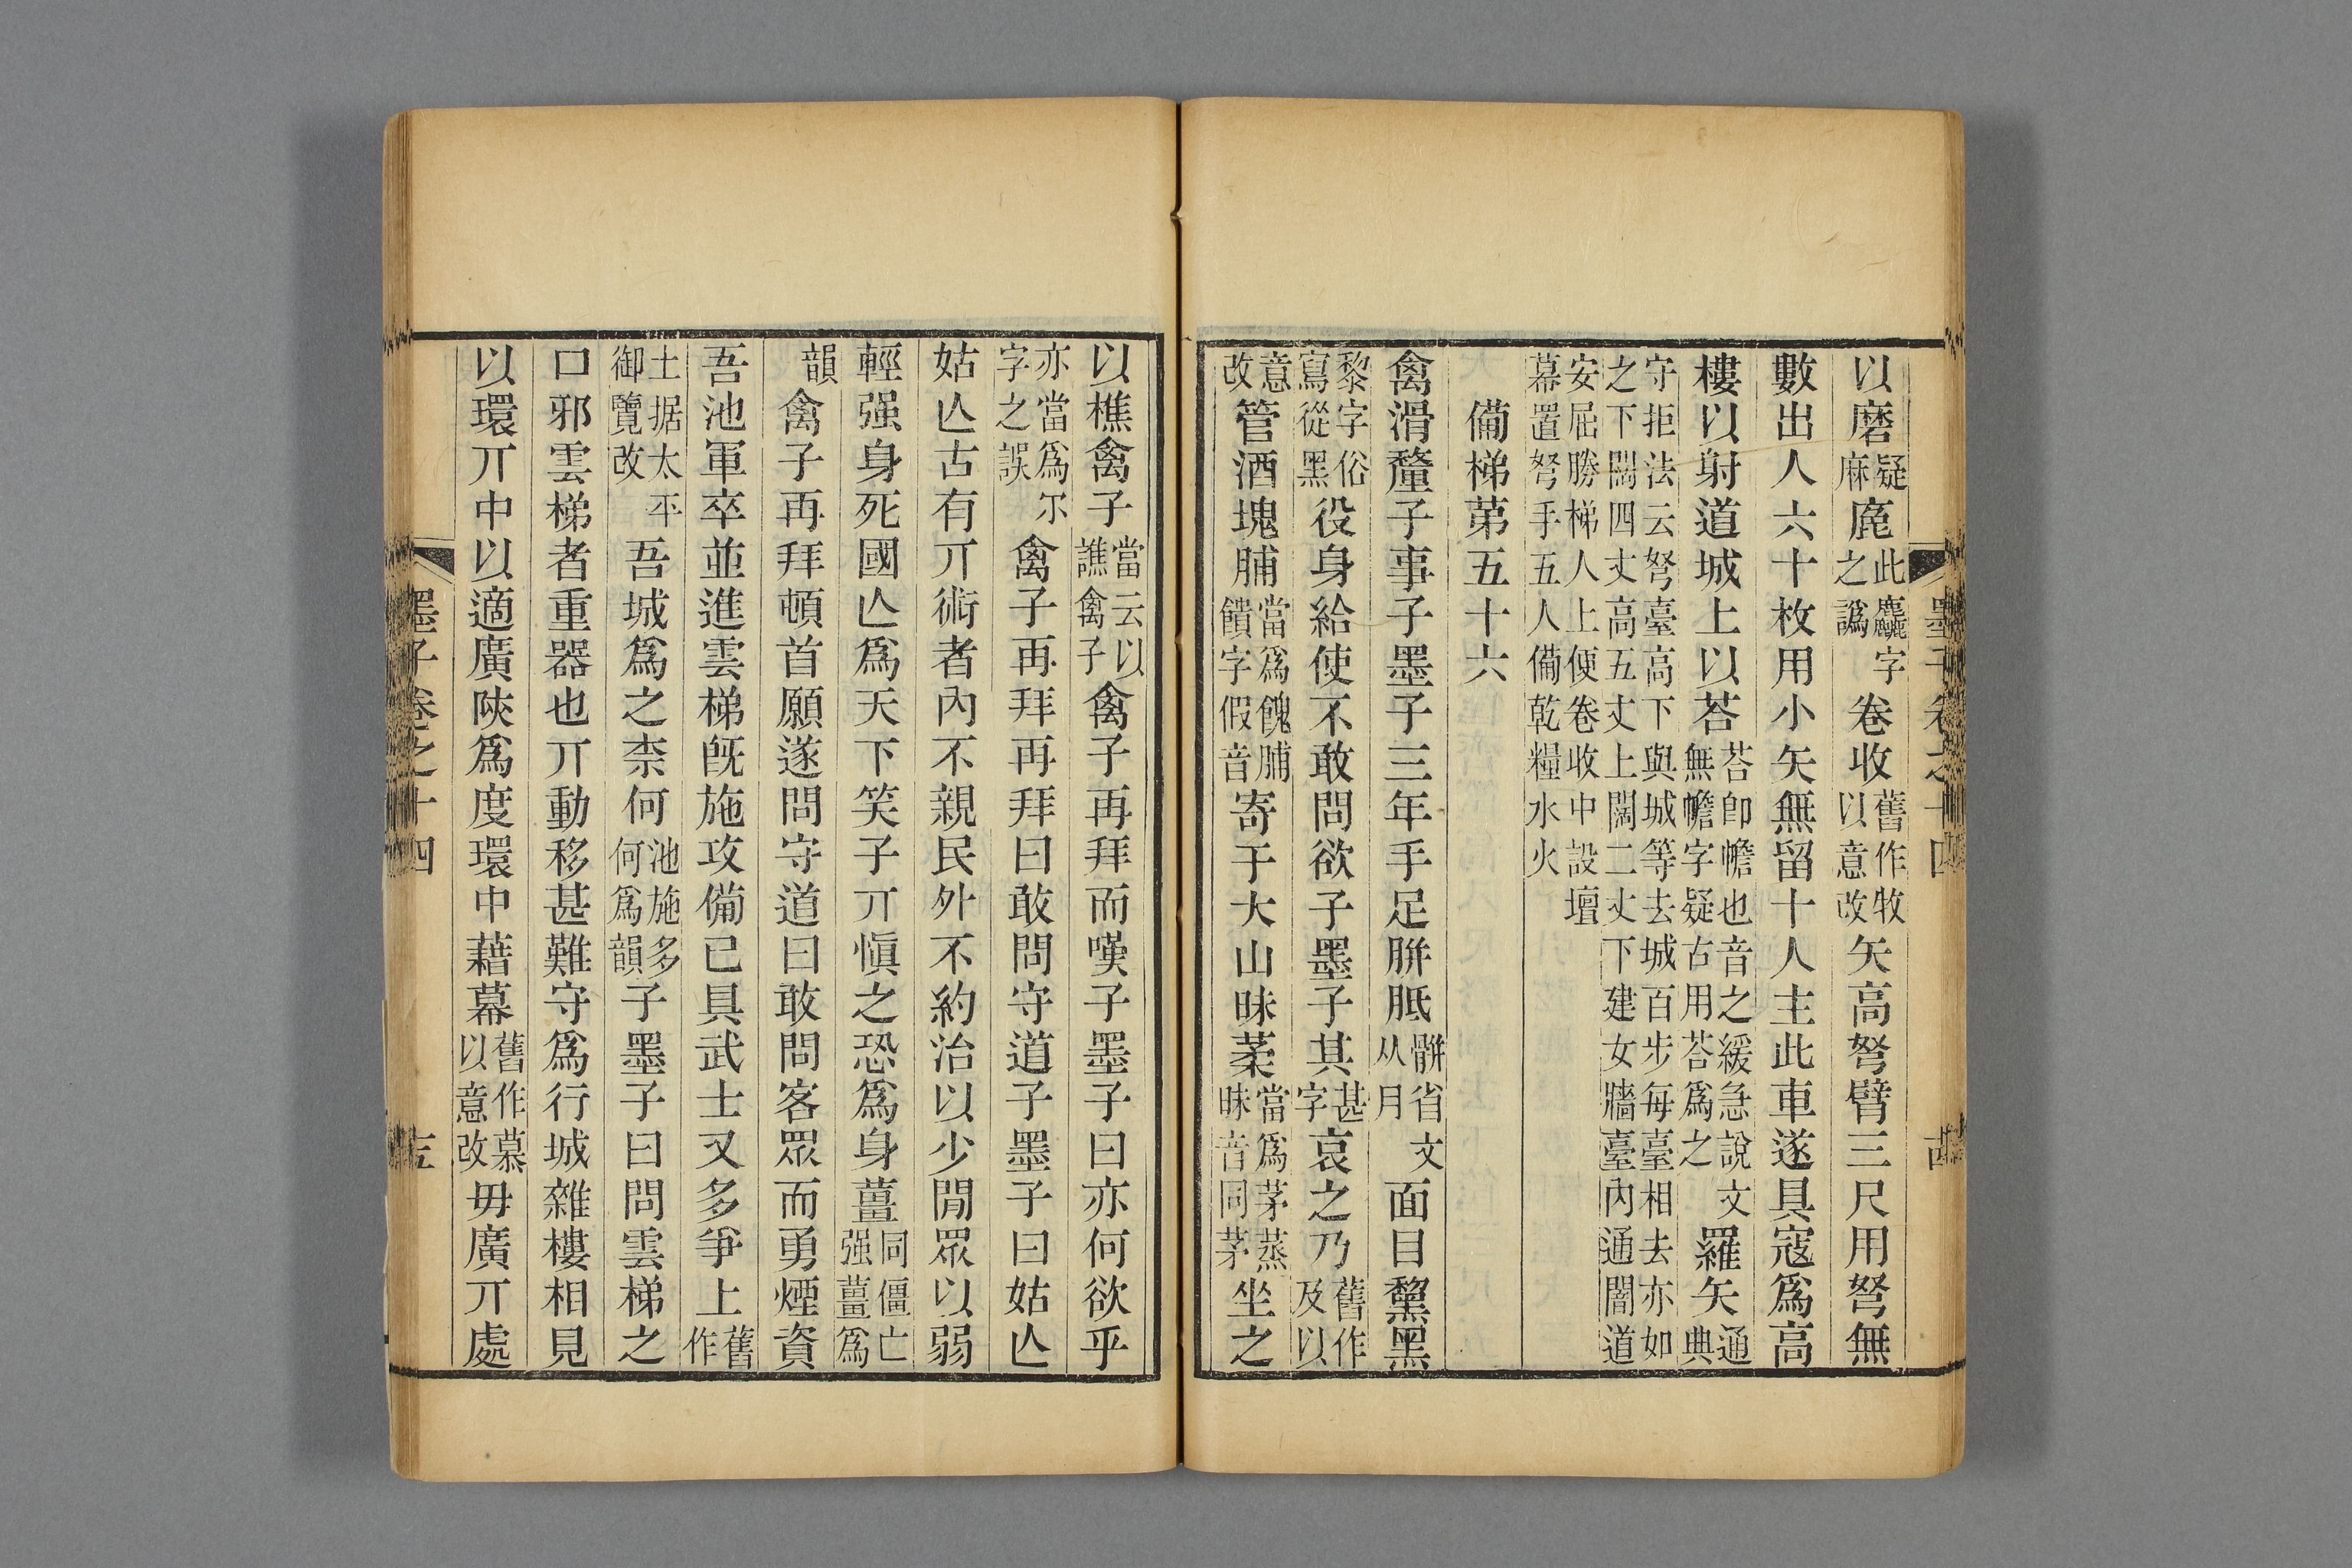 以磨疑麻麁此麤字之譌卷收舊作牧以意改矢高弩臂三尺用弩無
數出人六十枚用小矢無留十人主此車遂具寇爲高
樓以射道城上以荅荅卽幨也音之緩急說文無幨字疑古用荅爲之羅矢通典
守拒法云弩臺高下與城等去城百步每臺相去亦如之下闊四丈高五丈上闊二丈下建女牆臺內通闇道
安屈勝梯人上便卷收中設壇幕置弩手五人備乾糧水火
備梯第五十六
禽滑釐子事子墨子三年手足胼胝骿省文从月面目黧黑
黎字俗寫從黑役身給使不敢問欲子墨子其甚字哀之乃舊作及以
意改管酒塊脯當爲餽脯饋字假音寄于大山昧葇當爲茅蒸昧音同茅坐之
以樵禽子當云以譙禽子禽子再拜而嘆子墨子曰亦何欲乎
亦當爲尒字之誤禽子再拜再拜曰敢問守道子墨子曰姑亾
姑亾古有丌術者內不親民外不約治以少閒眾以弱
輕强身死國亾爲天下笑子丌愼之恐爲身薑同僵亡强薑爲
韻禽子再拜頓首願遂問守道曰敢問客眾而勇煙資
吾池軍卒並進雲梯旣施攻備已具武士又多爭上舊作
土据太平御覽改吾城爲之柰何池施多何爲韻子墨子曰問雲梯之
口邪雲梯者重器也丌動移甚難守爲行城雜樓相見
以環丌中以適廣陝爲度環中藉幕舊作慕以意改毋廣丌處
墨子卷之十四